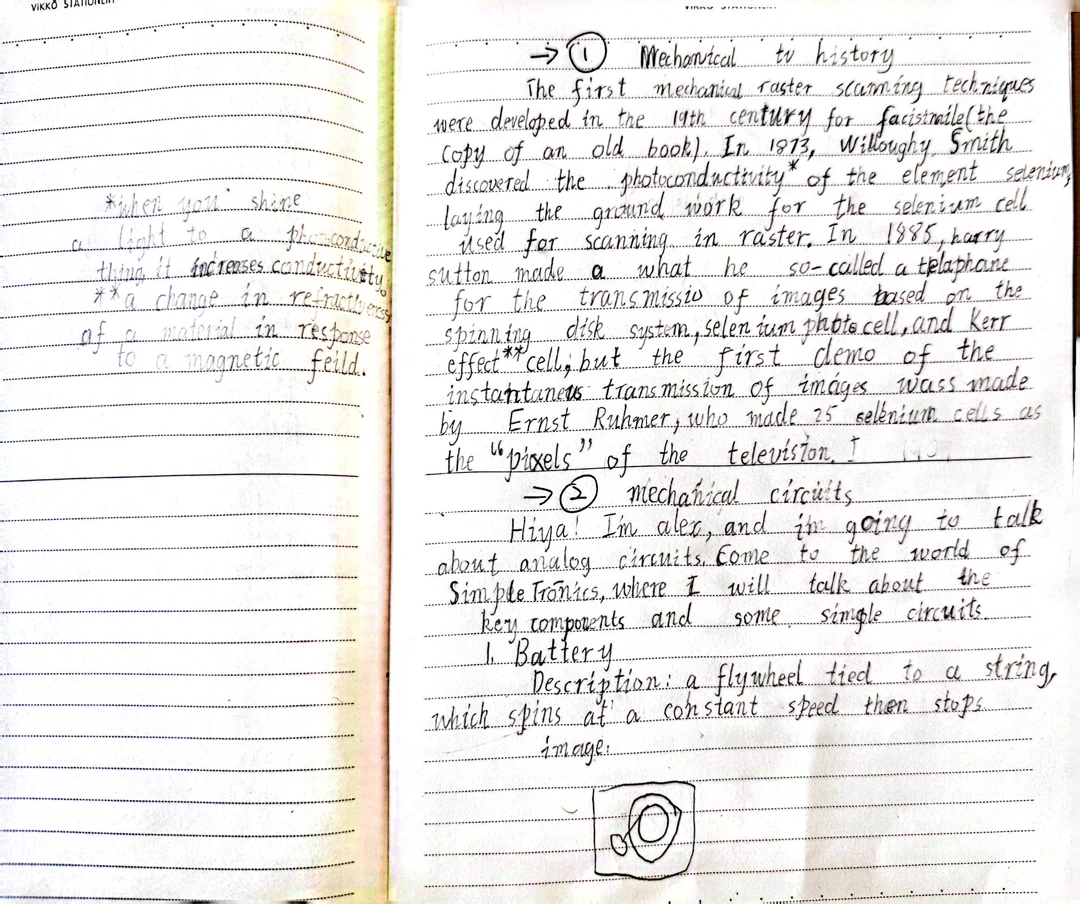 VIKKO STATIONERY
*when you shine
a light to a photoconductive
thing it increases conductivity.
**a change in refractiveness
of a material in response
to a magnetic feild.
→ ① Mechanical tv history
The first mechanical raster scanning techniques
were developed in the 19th century for facistmile(the
copy of an old book). In 1873, Willoughy Smith
discovered the photoconductivity* of the element selenium,
laying the ground work for the selenium cell
used for scanning in raster. In 1885, harry
sutton made a what he so-called a telaphane
for the transmissio of images based on the
spinning disk system, selenium photocell, and Kerr
effect** cell; but the first demo of the
instantaneus transmission of images wass made
by Ernst Ruhmer, who made 25 selenium cells as
the "pixels" of the television. I
→ ② mechanical circuits
Hiya! Im alex, and im going to talk
about analog circuits. Come to the world of
Simple Tronics, where I will talk about the
key components and some simple circuits.
1. Battery
Description: a flywheel tied to a string,
which spins at a constant speed then stops
image: